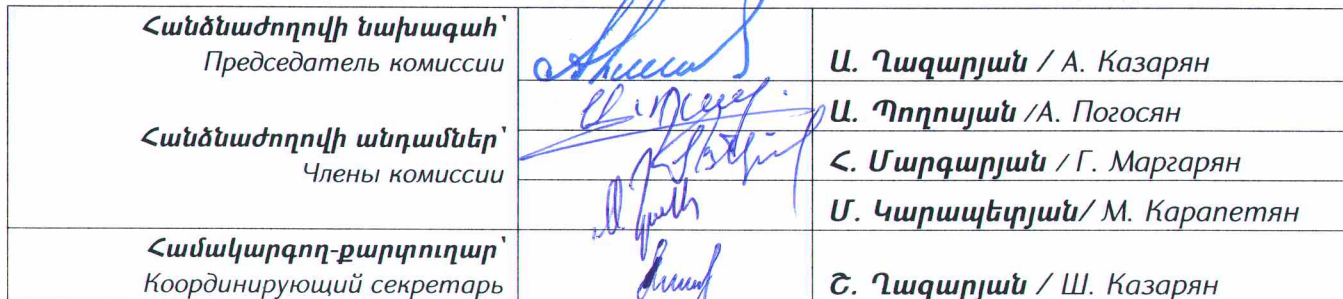 Հանձնաժողովի նախագահ՝
Председатель комиссии
Ա. Ղազարյան / А. Казарян
Ա. Պողոսյան /А. Погосян
Հանձնաժողովի անդամներ՝
Члены комиссии
Հ. Մարգարյան / Г. Маргарян
Մ. Կարապետյան/ М. Карапетян
Համակարգող-քարտուղար՝
Координирующий секретарь
Շ. Ղազարյան / Ш. Казарян